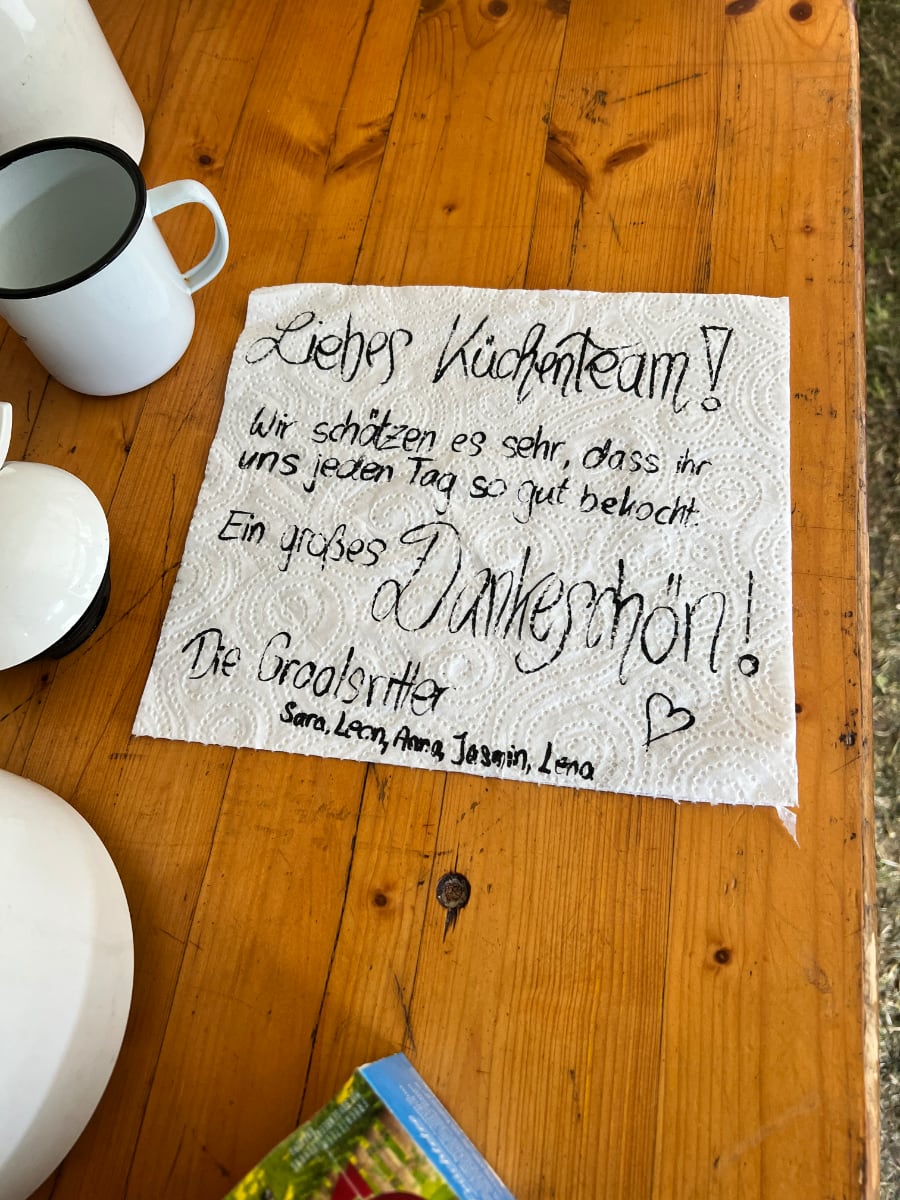 Liebes Küchenteam!
Wir schätzen es sehr, dass ihr
uns jeden Tag so gut bekocht.
Ein großes Dankeschön!
Die Graalsritter
Sara, Leon, Anna, Jasmin, Lena